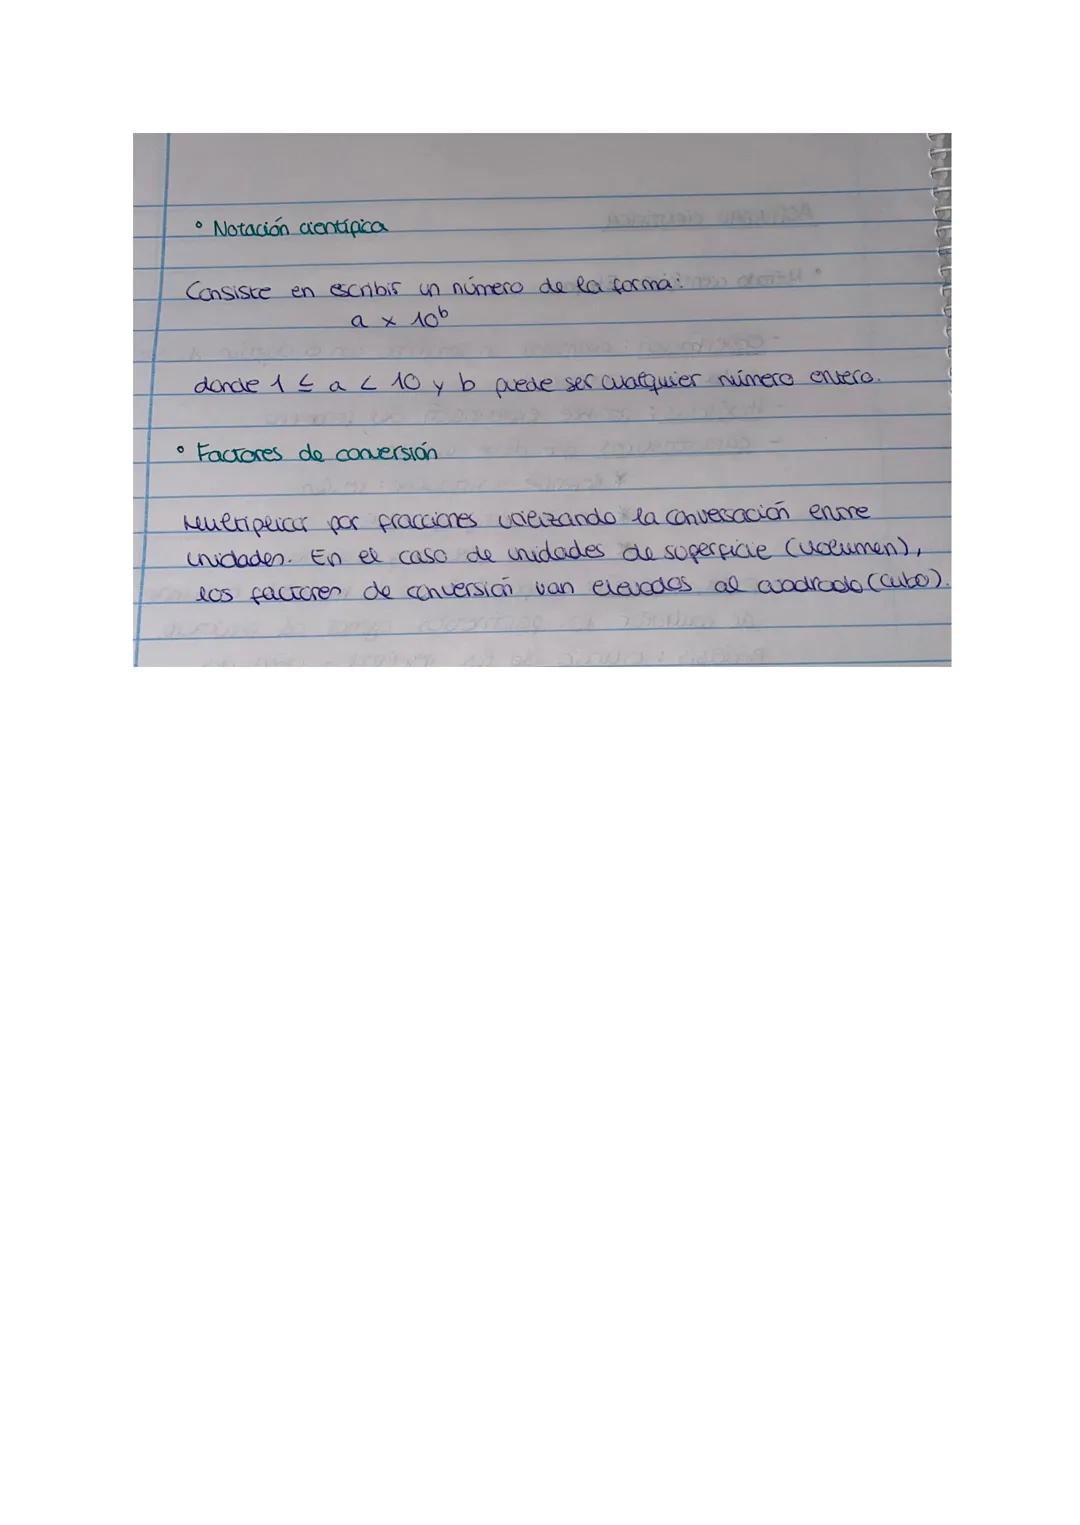 ° Notación científica
Consiste en escribir un número de la forma:
a x 10ᵇ
donde 1 ≤ a < 10 y b puede ser cualquier número entero.
° Factores de conversión
Multiplicar por fracciones utilizando la conversación entre
unidades. En el caso de unidades de superficie (volumen),
los factores de conversión van elevados al cuadrado (cubo).